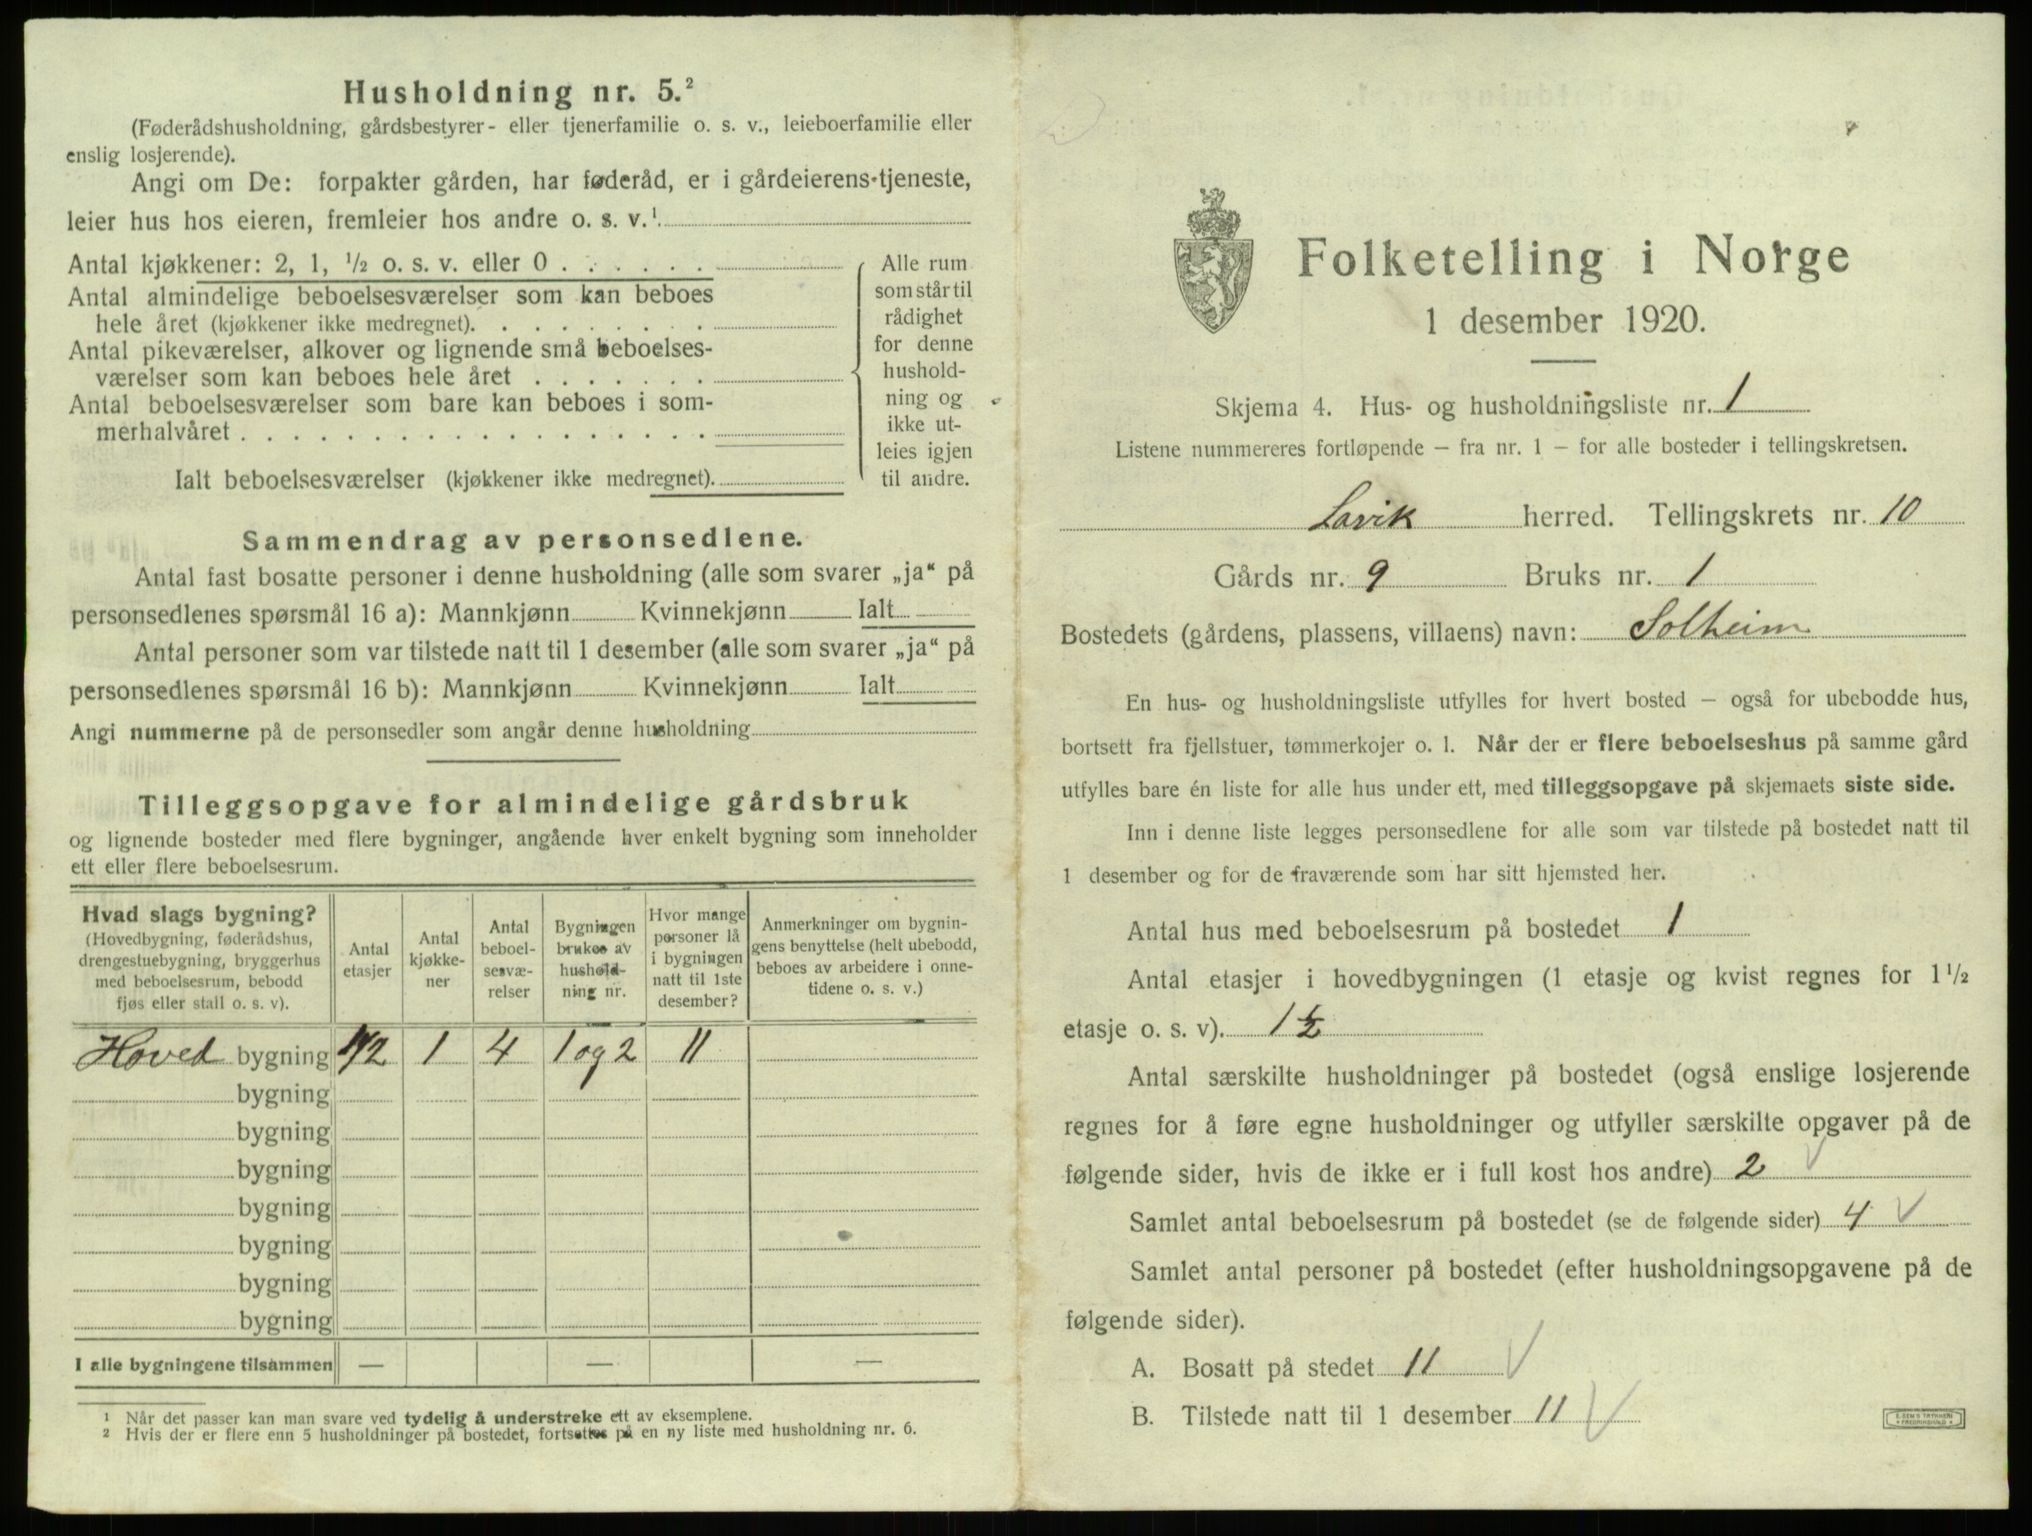 Husholdning nr. 5.²
(Føderådshusholdning, gårdsbestyrer- eller tjenerfamilie o. s. v., leieboerfamilie eller
enslig losjerende).
Angi om De: forpakter gården, har føderåd, er i gårdeierens tjeneste,
leier hus hos eieren, fremleier hos andre o. s. v.¹
Antal kjøkkener: 2, 1, ½ o. s. v. eller 0 . . . . . .
Antal almindelige beboelsesværelser som kan beboes
hele året (kjøkkener ikke medregnet). . . . . . . . .
Antal pikeværelser, alkover og lignende små beboelses-
værelser som kan beboes hele året . . . . . . .
Antal beboelsesværelser som bare kan beboes i som-
merhalvåret . . . . . . . . . . . . . . . . . .
Ialt beboelsesværelser (kjøkkener ikke medregnet).
Alle rum
som står til
rådighet
for denne
hushold-
ning og
ikke ut-
leies igjen
til andre.
Sammendrag av personsedlene.
Antal fast bosatte personer i denne husholdning (alle som svarer „ja“ på
personsedlenes spørsmål 16 a): Mannkjønn Kvinnekjønn Ialt
Antal personer som var tilstede natt til 1 desember (alle som svarer „ja“ på
personsedlenes spørsmål 16 b): Mannkjønn Kvinnekjønn Ialt
Angi nummerne på de personsedler som angår denne husholdning
Tilleggsopgave for almindelige gårdsbruk
og lignende bosteder med flere bygninger, angående hver enkelt bygning som inneholder
ett eller flere beboelsesrum.
Hvad slags bygning?
(Hovedbygning, føderådshus,
drengestuebygning, bryggerhus
med beboelsesrum, bebodd
fjøs eller stall o. s. v).
Antal
etasjer
Antal
kjøkke-
ner
Antal
beboel-
sesvæ-
relser
Bygningen
brukes av
hushold-
ning nr.
Hvor mange
personer lå
i bygningen
natt til 1ste
desember?
Anmerkninger om bygnin-
gens benyttelse (helt ubebodd,
beboes av arbeidere i onne-
tidene o. s. v.)
Hoved bygning 1½ 1 4 1 og 2 11
bygning
bygning
bygning
bygning
bygning
bygning
bygning
I alle bygningene tilsammen — — —
¹ Når det passer kan man svare ved tydelig å understreke ett av eksemplene.
² Hvis der er flere enn 5 husholdninger på bostedet, fortsettes på en ny liste med husholdning nr. 6.
Folketelling i Norge
1 desember 1920.
Skjema 4. Hus- og husholdningsliste nr. 1
Listene nummereres fortløpende — fra nr. 1 — for alle bosteder i tellingskretsen.
Lavik herred. Tellingskrets nr. 10
Gårds nr. 9 Bruks nr. 1
Bostedets (gårdens, plassens, villaens) navn: Solheim
En hus- og husholdningsliste utfylles for hvert bosted — også for ubebodde hus,
bortsett fra fjellstuer, tømmerkojer o. l. Når der er flere beboelseshus på samme gård
utfylles bare én liste for alle hus under ett, med tilleggsopgave på skjemaets siste side.
Inn i denne liste legges personsedlene for alle som var tilstede på bostedet natt til
1 desember og for de fraværende som har sitt hjemsted her.
Antal hus med beboelsesrum på bostedet 1
Antal etasjer i hovedbygningen (1 etasje og kvist regnes for 1½
etasje o. s. v). 1½
Antal særskilte husholdninger på bostedet (også enslige losjerende
regnes for å føre egne husholdninger og utfyller særskilte opgaver på de
følgende sider, hvis de ikke er i full kost hos andre) 2
Samlet antal beboelsesrum på bostedet (se de følgende sider) 4
Samlet antal personer på bostedet (efter husholdningsopgavene på de
følgende sider).
A. Bosatt på stedet 11
B. Tilstede natt til 1 desember 11